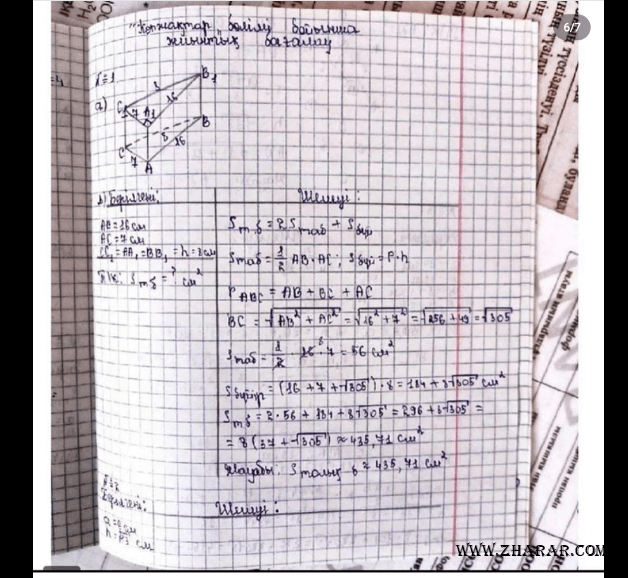 6/7
"Көпжақтар бөлімі бойынша
жиынтық бағалау
№1
а)
C1 7 A1 8 16 B1
C 7 A 8 16 B
ә) Берілгені:
AB = 16 см
AC = 7 см
CC1 = AA1 = BB1 = h = 8 см
Т/к: Sт.б = ? см²
Шешуі:
Sт.б = 2Sтаб + Sбүй
Sтаб = 1/2 AB · AC; Sбүй = P · h
P ABC = AB + BC + AC
BC = √AB² + AC² = √16² + 7² = √256 + 49 = √305
Sтаб = 1/2 · 16 8 · 7 = 56 см²
Sбүйір = (16 + 7 + √305) · 8 = 184 + 8√305 см²
Sт.б = 2 · 56 + 184 + 8√305 = 296 + 8√305 =
= 8 (37 + √305) ≈ 435,71 см²
Жауабы: Sтолық б ≈ 435,71 см²
№2
Берілгені:
Шешуі:
WWW.ZHARAR.COM